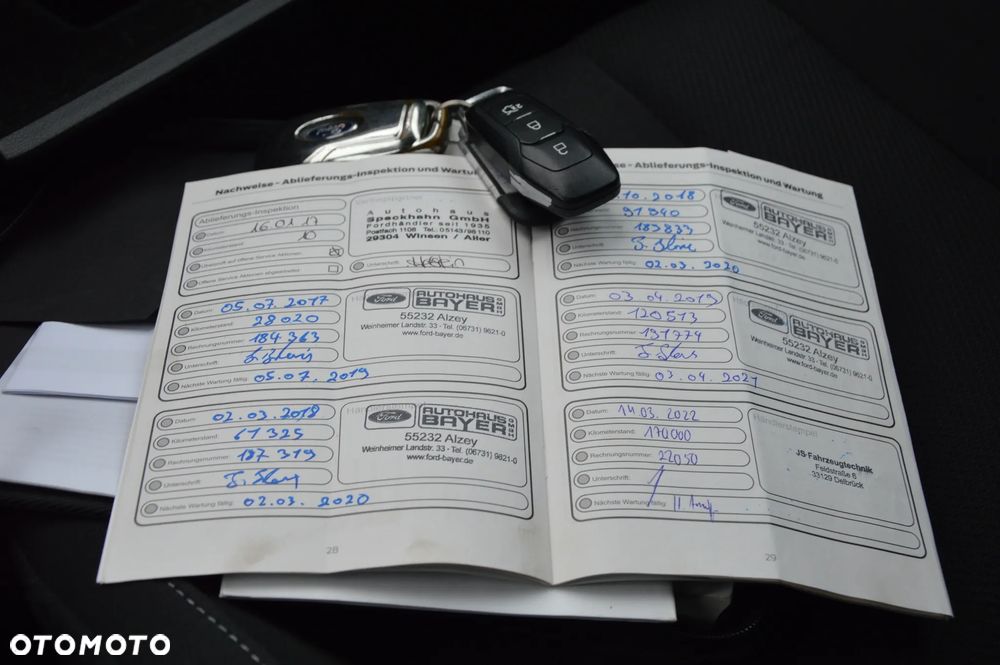 Nachweise - Ablieferungs-Inspektion und Wartu
Ablieferungs-Inspektion
16.01.17
10
Offene Service Aktionen abgearbeitet
Autohaus
Speckhahn GmbH
Fordhändler seit 1935
Postfach 1106 Tel. 05143/98110
29304 Winsen / Aller
Unterschrift:
Datum: 05.07.2017
Kilometerstand: 28020
Rechnungsnummer: 184363
Unterschrift:
Nächste Wartung fällig: 05.07.2019
Ford AUTOHAUS
BAYER GMBH
55232 Alzey
Weinheimer Landstr. 33 - Tel. (06731) 9621-0
www.ford-bayer.de
Datum: 02.03.2018
Kilometerstand: 61325
Rechnungsnummer: 187319
Unterschrift:
Nächste Wartung fällig: 02.03.2020
Ford AUTOHAUS
BAYER GMBH
55232 Alzey
Weinheimer Landstr. 33 - Tel. (06731) 9621-0
www.ford-bayer.de
28
se - Ablieferungs-Inspektion und Wartung
10.2018
91940
183833
Unterschrift:
Nächste Wartung fällig: 02.03.2020
Ford AUTOHAUS
BAYER GMBH
55232 Alzey
Weinheimer Landstr. 33 - Tel. (06731) 9621-0
www.ford-bayer.de
Datum: 03.04.2019
Kilometerstand: 120513
Rechnungsnummer: 191774
Unterschrift:
Nächste Wartung fällig: 03.04.2021
Ford AUTOHAUS
BAYER GMBH
55232 Alzey
Weinheimer Landstr. 33 - Tel. (06731) 9621-0
www.ford-bayer.de
Datum: 14.03.2022
Kilometerstand: 170000
Rechnungsnummer: 22050
Unterschrift:
Nächste Wartung fällig:
Händlerstempel
JS-Fahrzeugtechnik
Feldstraße 6
33129 Delbrück
29
OTOMOTO